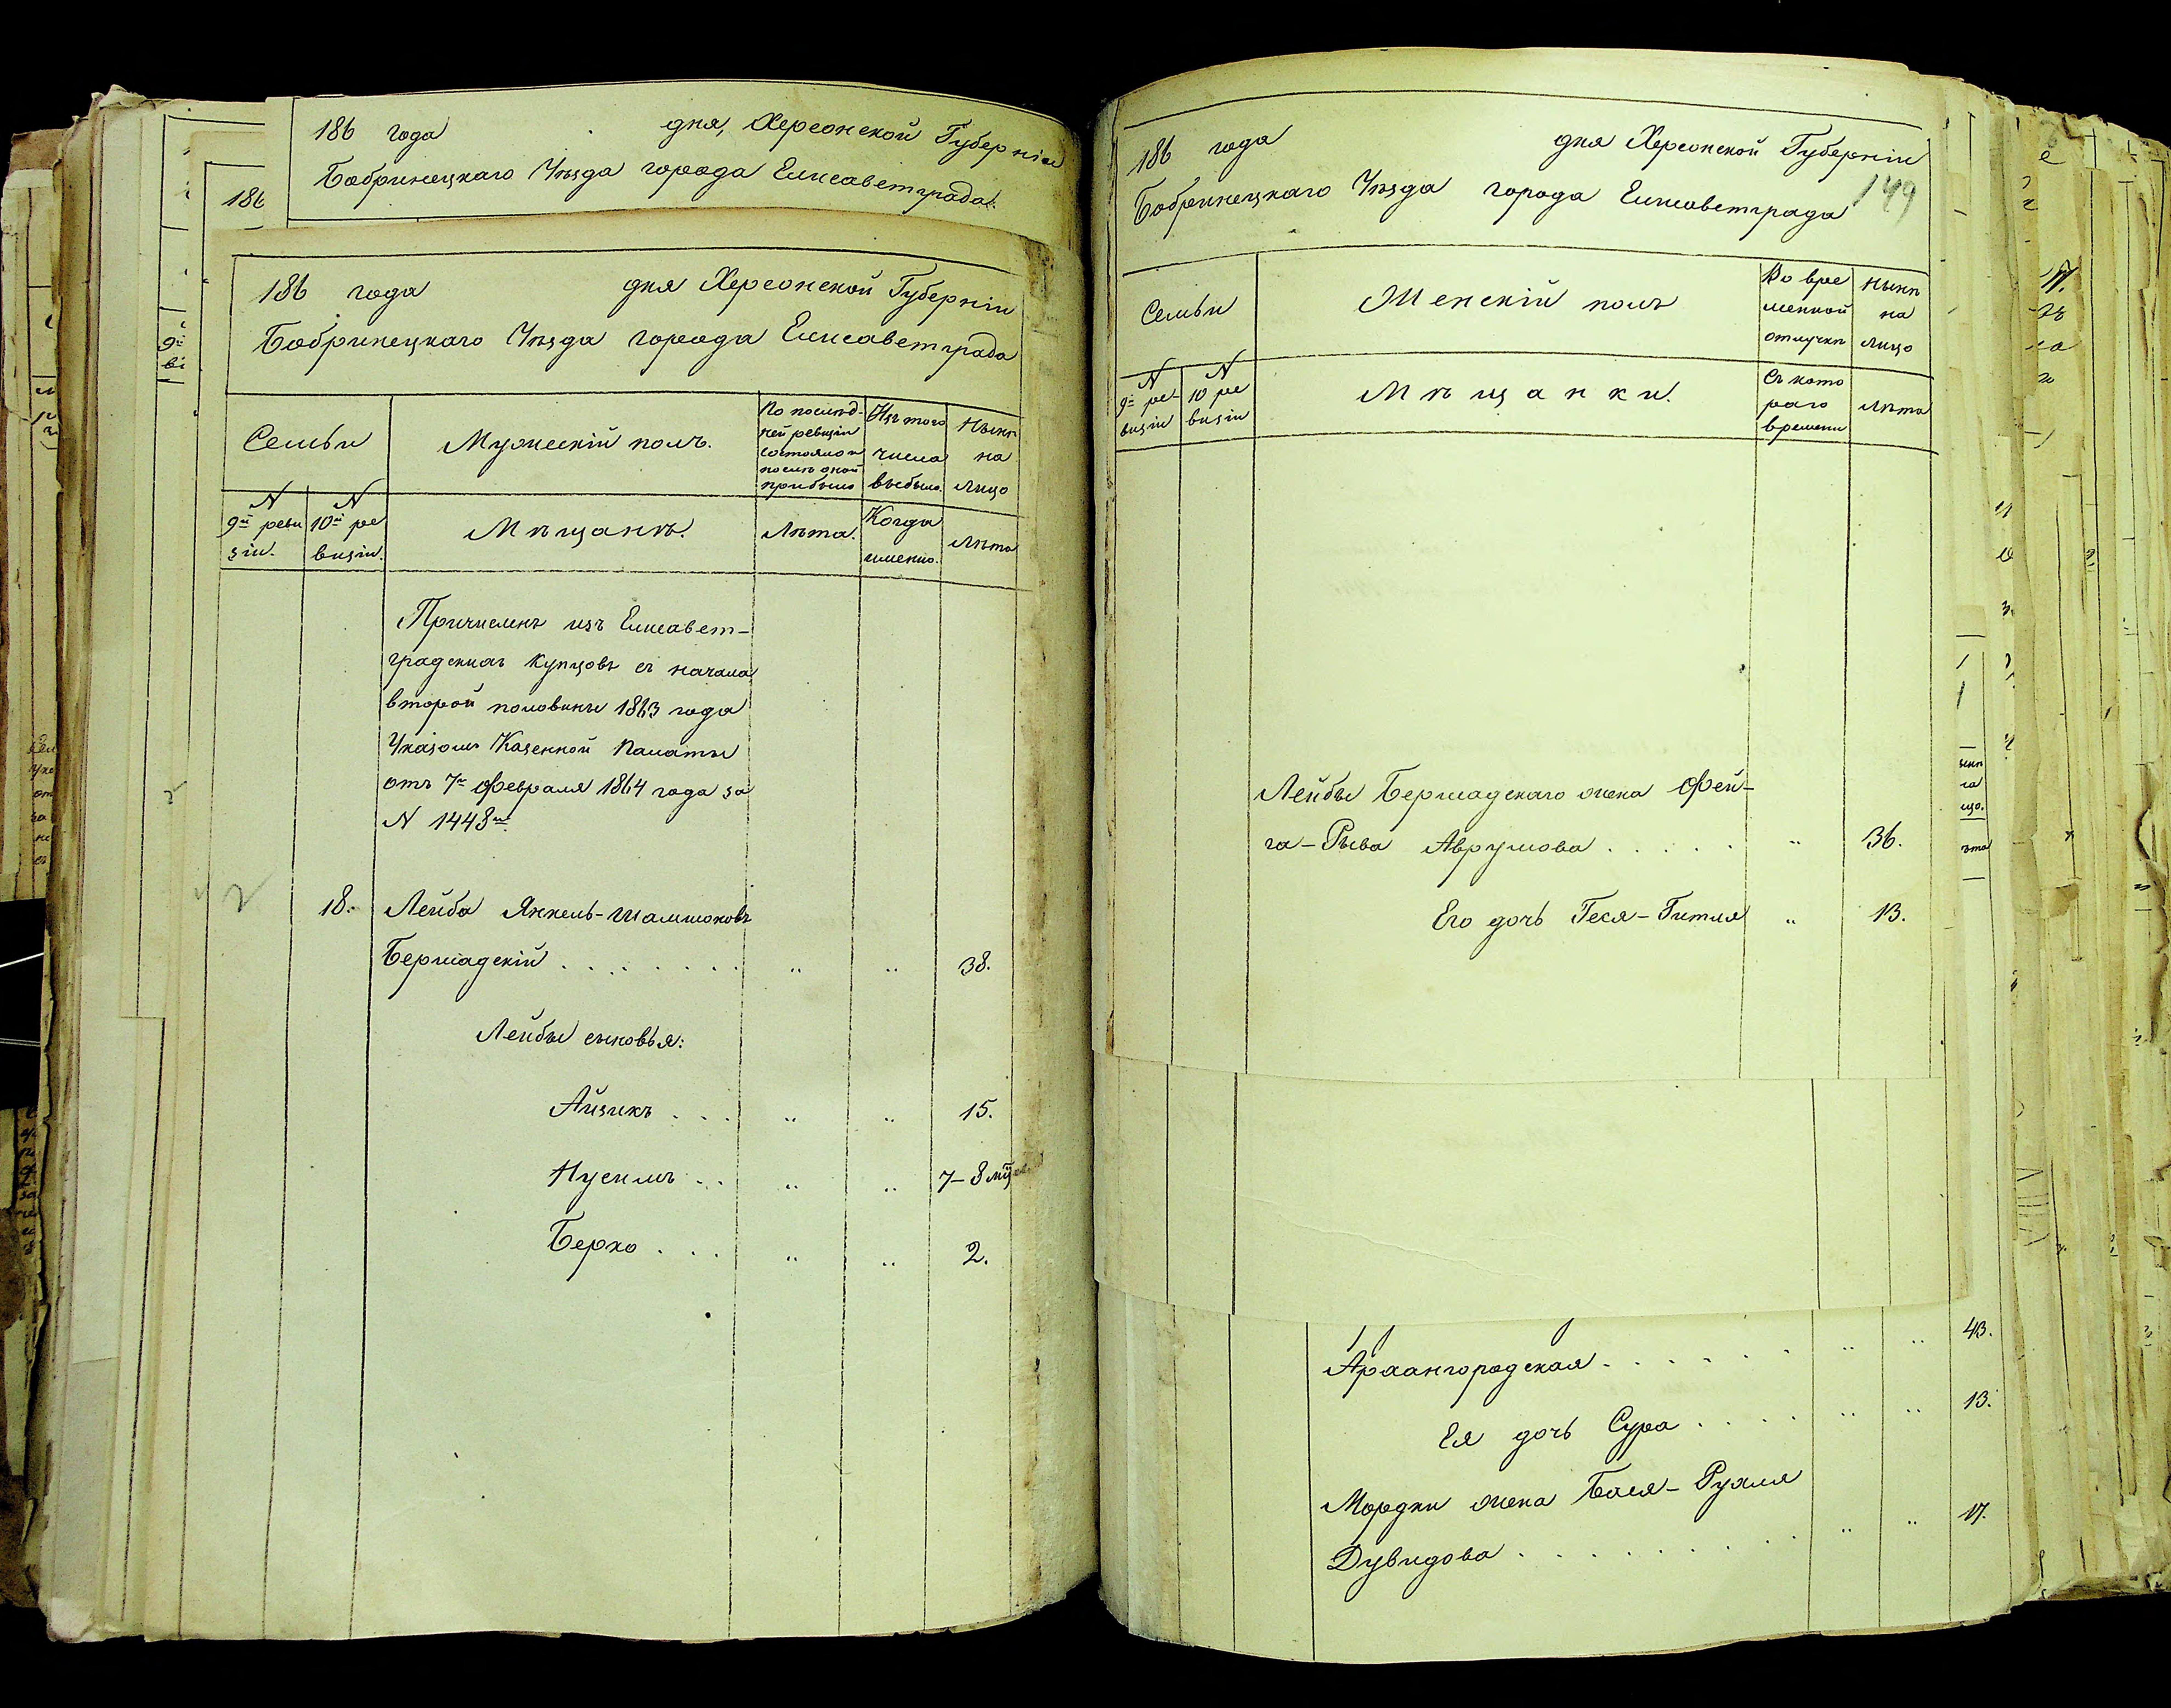 186 года дня, Херсонской Губерніи
Бобринецкаго Уѣзда города Елисаветграда.
186
186 года дня Херсонской Губерніи
Бобринецкаго Уѣзда города Елисаветграда
Семьи
Мужескій полъ.
По послѣд-
ней ревизіи
состояло и
послѣ оной
прибыло
Изъ того
числа
выбыло.
Нынѣ
на
лицо
N
9й реви
зіи.
N
10й ре
визіи.
Мѣщане.
Лѣта.
Когда
именно.
Лѣта
Причисленъ изъ Елисавет-
градскихъ купцовъ съ начала
второй половины 1863 года
Указомъ Казенной Палаты
отъ 7го Февраля 1864 года за
N 1448мъ
18. Лейба Янкель-Шамшоновъ
Бершадскій . . . . . . . . „ „ 38.
Лейбы сыновья:
Айзикъ . . . „ „ 15.
Нусимъ . . „ „ 7-8 мц
Берко . . . „ „ 2.
186 года дня Херсонской Губерніи
Бобринецкаго Уѣзда города Елисаветграда
149
Семьи
Женскій полъ
Во вре
менной
отлучкѣ
Нынѣ
на
лицо
N
9й ре-
визіи
N
10 ре
визіи
Мѣщанки.
Съ кото
раго
времени
Лѣта
Лейбы Бершадскаго жена Фей-
га-Рыва Аврумова . . . . . „ 36.
Его дочь Геся-Гитля „ 13.
43.
Архангородская . . . . . . „ „
Ея дочь Сура . . . . „ „ 13.
Мордки жена Бася-Рухля
Дувидова . . . . . . . . . „ „ 17.